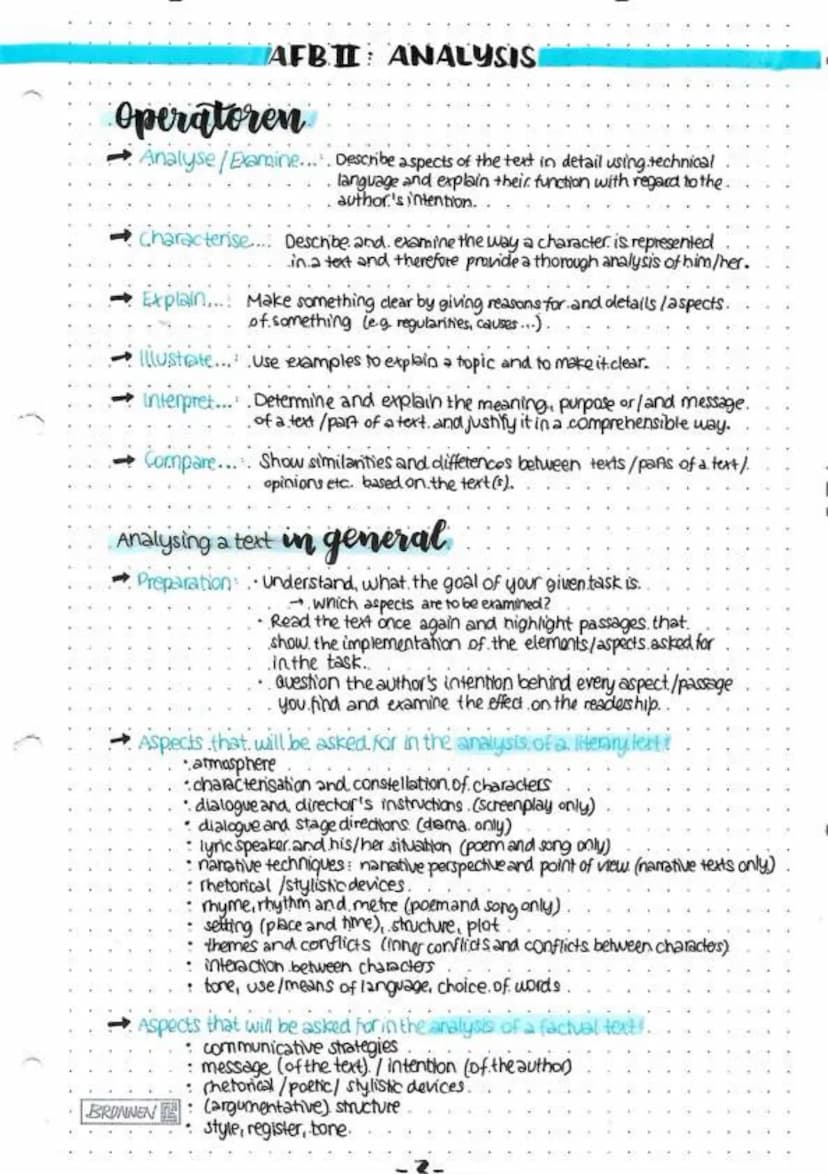 AFB II: ANALYSIS
Operatoren
→ Analyse/Examine...: Describe aspects of the text in detail using technical
language and explain their function with regard to the
author's intention.
→ Characterise...: Describe and examine the way a character is represented
in a text and therefore provide a thorough analysis of him/her.
→ Explain...: Make something clear by giving reasons for and details/aspects
of something (e.g. regularities, causes...).
→ Illustrate...: Use examples to explain a topic and to make it clear.
→ Interpret...: Determine and explain the meaning, purpose or/and message
of a text/part of a text and justify it in a comprehensible way.
→ Compare...: Show similarities and differences between texts/parts of a text/
opinions etc. based on the text(s).
Analysing a text in general
→ Preparation: • Understand, what the goal of your given task is.
→ Which aspects are to be examined?
• Read the text once again and highlight passages that
show the implementation of the elements/aspects asked for
in the task.
• Question the author's intention behind every aspect/passage
you find and examine the effect on the readership.
→ Aspects that will be asked for in the analysis of a literary text:
• atmosphere
• characterisation and constellation of characters
• dialogue and director's instructions (screenplay only)
• dialogue and stage directions (drama only)
• lyric speaker and his/her situation (poem and song only)
• narrative techniques: narrative perspective and point of view (narrative texts only)
• rhetorical/stylistic devices
• rhyme, rhythm and metre (poem and song only)
• setting (place and time), structure, plot
• themes and conflicts (inner conflicts and conflicts between characters)
• interaction between characters
• tone, use/means of language, choice of words
→ Aspects that will be asked for in the analysis of a factual text:
• communicative strategies
• message (of the text) / intention (of the author)
• rhetorical/poetic/stylistic devices
• (argumentative) structure
• style, register, tone
BRONNEN
- 2 -